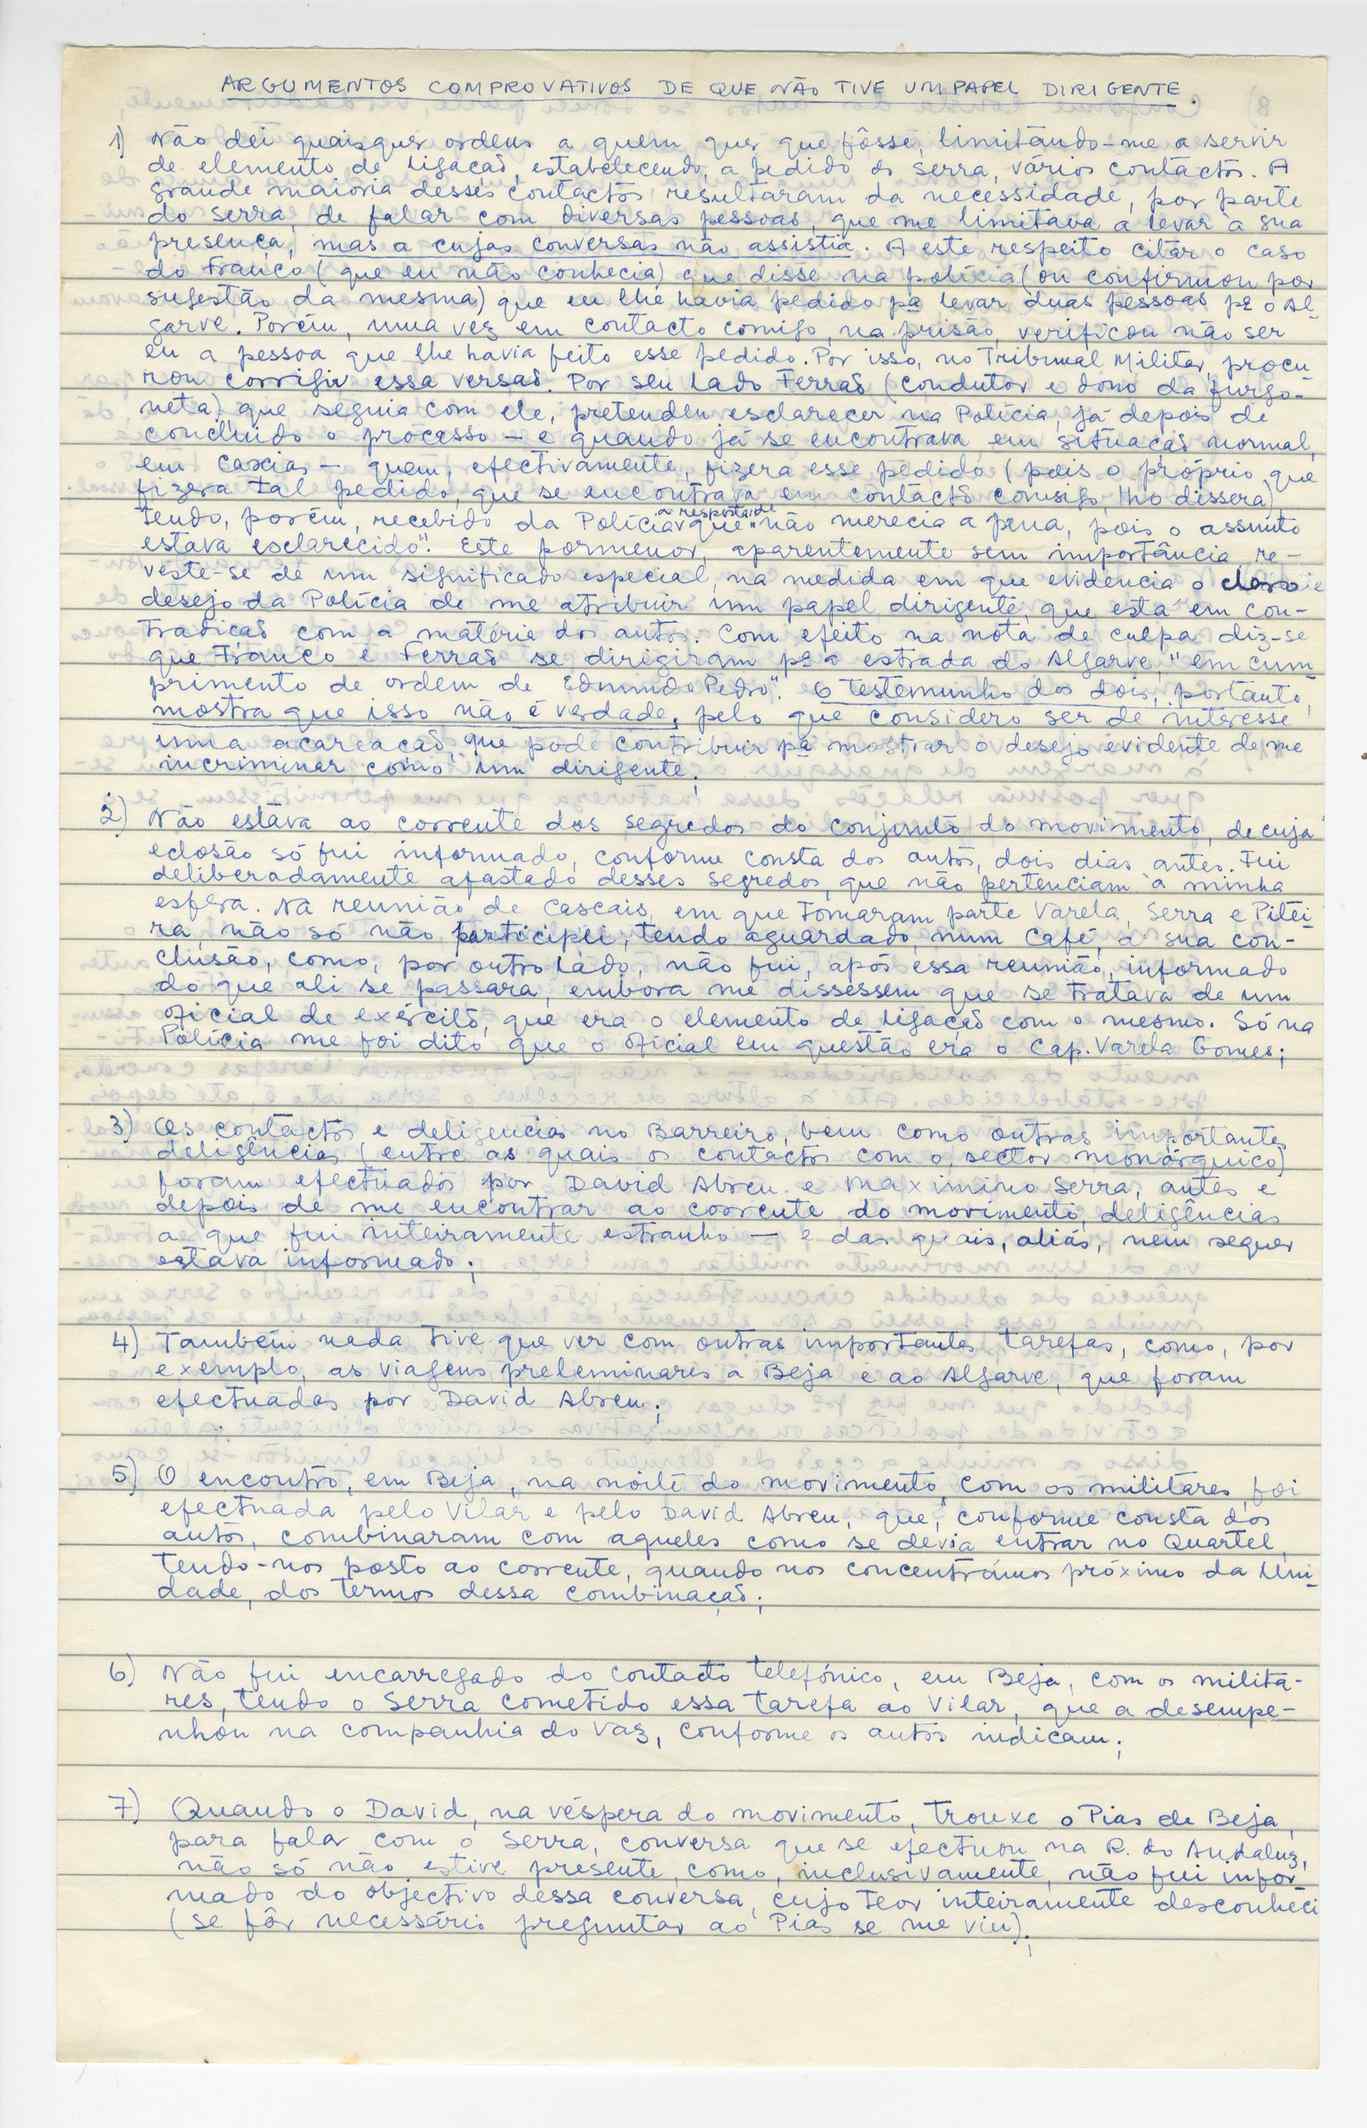 ARGUMENTOS COMPROVATIVOS DE QUE NÃO TIVE UM PAPEL DIRIGENTE.
1) Não dei quaisquer ordens a quem quer que fôsse, limitando-me a servir
de elemento de ligação, estabelecendo, a pedido do Serra, vários contactos. A
grande maioria desses contactos resultaram da necessidade, por parte
do Serra, de falar com diversas pessoas, que me limitava a levar à sua
presença, mas a cujas conversas não assistia. A este respeito citar o caso
do Franco (que eu não conhecia) que disse na polícia (ou confirmou por
sugestão da mesma) que eu lhe havia pedido pª levar duas pessoas pª o Al-
garve. Porém, uma vez em contacto comigo, na prisão, verificou não ser
eu a pessoa que lhe havia feito esse pedido. Por isso, no Tribunal Militar, procu-
rou corrigir essa versão. Por seu lado Ferraz (condutor e dono da furgo-
neta), que seguia com ele, pretendeu esclarecer na Polícia, já depois de
concluído o processo - e quando já se encontrava em situação normal,
em Caxias - quem, efectivamente, fizera esse pedido (pois o próprio que
fizera tal pedido, que se encontrava em contacto consigo, lho dissera)
tendo, porém, recebido da Polícia a resposta de que "não merecia a pena, pois o assunto
estava esclarecido". Este pormenor, aparentemente sem importância, re-
veste-se de um significado especial, na medida em que evidencia o claro
desejo da Polícia de me atribuir um papel dirigente, que está em con-
tradição com a matéria dos autos. Com efeito na nota de culpa diz-se
que Franco e Ferraz se dirigiram pª a estrada do Algarve, "em cum-
primento de ordem de Edmundo Pedro". O testemunho dos dois, portanto,
mostra que isso não é verdade, pelo que considero ser de interesse
uma acareação, que pode contribuir pª mostrar o desejo evidente de me
incriminar como um dirigente;
2) Não estava ao corrente dos segredos do conjunto do movimento, de cuja
eclosão só fui informado, conforme consta dos autos, dois dias antes. Fui
deliberadamente afastado desses segredos, que não pertenciam à minha
esfera. Na reunião de Cascais, em que tomaram parte Varela, Serra e Pitei-
ra, não só não participei, tendo aguardado, num café, a sua con-
clusão, como, por outro lado, não fui, após essa reunião, informado
do que ali se passara, embora me dissessem que se tratava de um
oficial de exército, que era o elemento de ligação com o mesmo. Só na
Polícia me foi dito que o oficial em questão era o Cap. Varela Gomes;
3) Os contactos e deligencias no Barreiro, bem como outras importantes
deligências (entre as quais os contactos com o sector monárquico)
foram efectuados por David Abreu e Maximino Serra, antes e
depois de me encontrar ao corrente do movimento, deligências
a que fui inteiramente estranho - e das quais, aliás, nem sequer
estava informado;
4) Também nada tive que ver com outras importantes tarefas, como, por
exemplo, as viagens preleminares a Beja e ao Algarve, que foram
efectuadas por David Abreu;
5) O encontro, em Beja, na noite do movimento, com os militares, foi
efectuada pelo Vilar e pelo David Abreu, que, conforme consta dos
autos, combinaram com aqueles como se devia entrar no Quartel,
tendo-nos posto ao corrente, quando nos concentrámos próximo da Uni-
dade, dos termos dessa combinação;
6) Não fui encarregado do contacto telefónico, em Beja, com os milita-
res, tendo o Serra cometido essa tarefa ao Vilar, que a desempe-
nhou na companhia do Vaz, conforme os autos indicam;
7) Quando o David, na véspera do movimento, trouxe o Pias de Beja,
para falar com o Serra, conversa que se efectuou na R. do Andaluz,
não só não estive presente, como, inclusivamente, não fui infor-
mado do objectivo dessa conversa, cujo teor inteiramente desconheci
(se fôr necessário preguntar ao Pias se me viu);